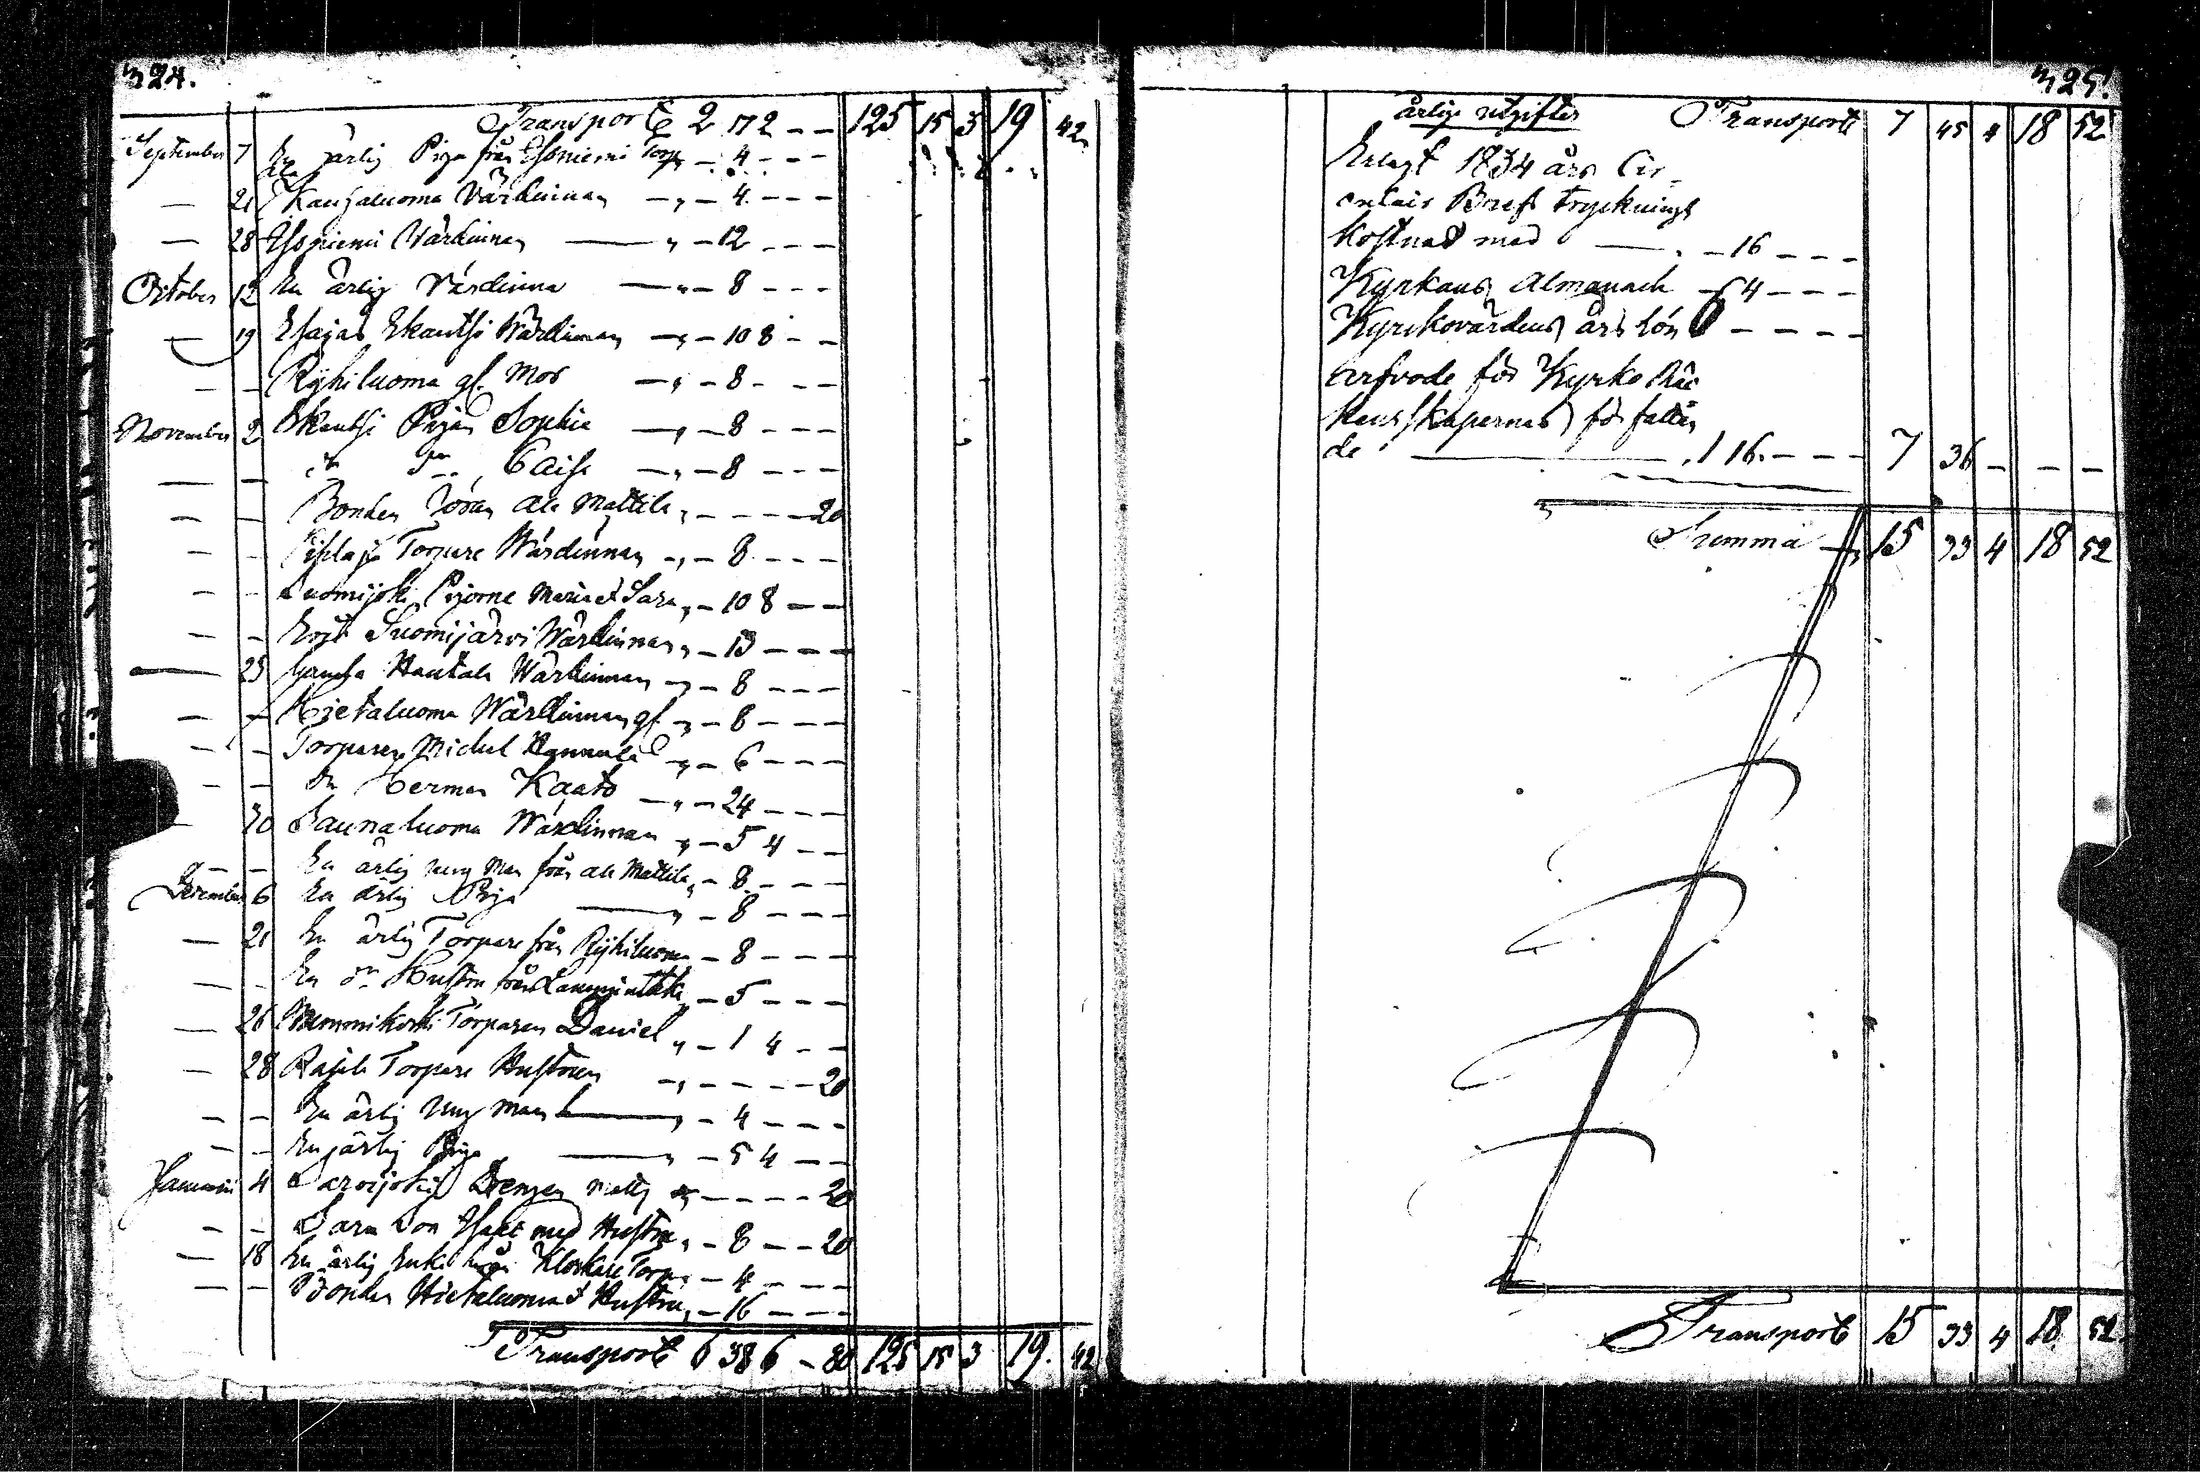 324.
Transport 2 17 2 - - 125 15 3 19 42
September 7 En ärlig Piga från Isoniemi Torp - 4 - - -
- 21 Kangasluoma Wärdinnan - „ - 4 - - -
- 28 Isoniemi Wärdinnan - „ - 12 - - -
October 12 En ärlig Värdinna - „ - 8 - - -
- 19 Esajas Skantsi Wärdinnan - „ - 10 8 - -
- - Ryhiluoma gl. Mor - „ - 8 - - -
November 2 Skantsi Pigan Sophia - „ - 8 - - -
- - Caisa - „ - 8 - - -
- - Bonden Göran Ala Mattila „ - - - - 20
- - Torpare Wärdinnan - „ - 8 - - -
- - Luomijoki Pigorne Maria et Sara „ - 10 8 - -
- - Suomijärvi Wärdinnan „ - 13 - - -
- 23 Hautala Wärdinnan - „ - 8 - - -
- - Hietaluoma Wärdinnan gl. „ - 8 - - -
- - Torparen Michel Hannula „ - 6 - - -
- - Dn Herman Kaato - „ - 24 - - -
- 30 Saunaluoma Wärdinnan „ - 5 4 - -
- - En ärlig ung Man från Ala Mattila „ - 8 - - -
December 6 En ärlig Piga - „ - 8 - - -
- 21 En ärlig Torpare från Ryhiluoma - 8 - - -
- - En dn Hustru från - 5 - - -
- 26 Torparen Daniel „ - 1 4 - -
- 28 Rajala Torpare Hustrun - „ - - - - 20
- - En ärlig Ung man - „ - 4 - - -
- - En ärlig Piga - „ - 5 4 - -
Januarii 4 Sarvijoki Drengen Matts „ - - - - 20
- - Sara Son Isaac med Hustru „ - 8 - - 20
- 18 En ärlig Enka Klockare Torp - 4 - - -
- - Bonden Hietaluoma o Hustru „ - 16 - - -
Transport 6 38 6 - 80 125 15 3 19. 42
325.
årlige utgifter Transport 7 45 4 18 52
Erlagt 1834 års Cir-
culair Bref trycknings
kostnad med - „ - 16 - - -
Kyrkans Almanach - 4 - - -
Kyrkovärdens års lön 6 - - - -
Arfvode för Kyrko Räk
kenskapernas författan
de - „ 1 16 - - - 7 36 - - -
Summa 15 33 4 18 52
Transport 15 33 4 18 52